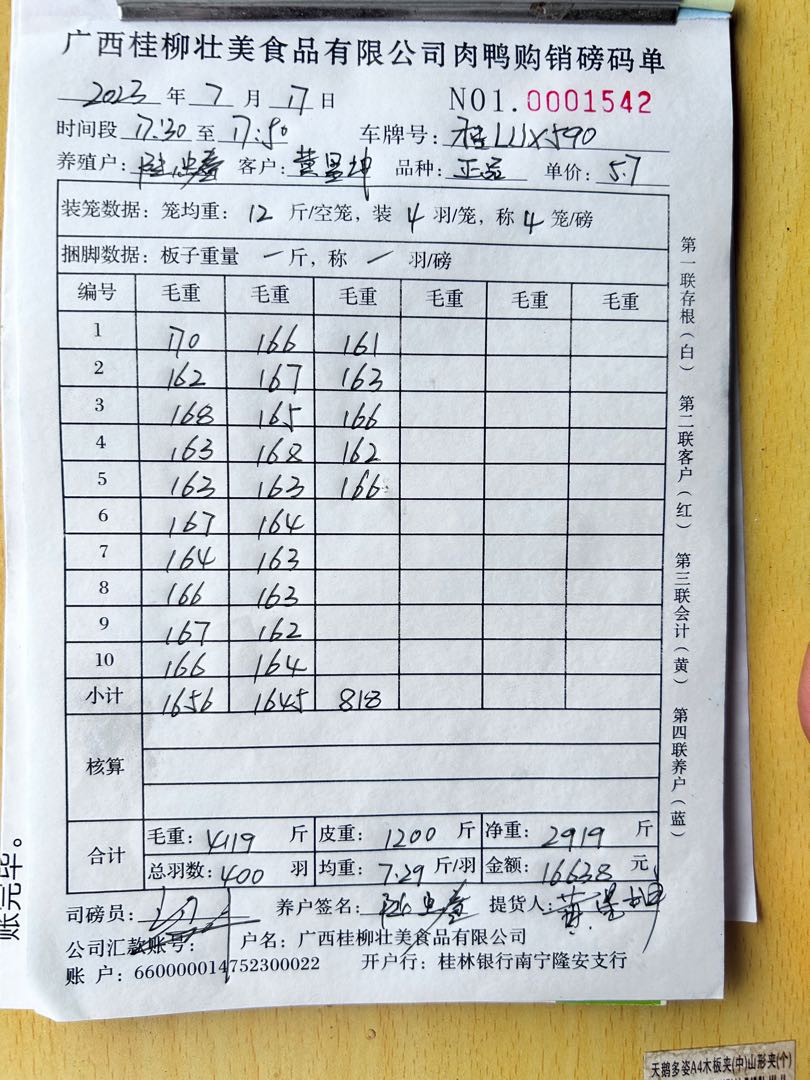 广西桂柳壮美食品有限公司肉鸭购销磅码单
2023 年 7 月 17 日 NO1.0001542
时间段 17:30 至 17:50 车牌号: 桂LUX590
养殖户: 客户: 黄星坤 品种: 正品 单价: 5.7
装笼数据: 笼均重: 12 斤/空笼, 装 4 羽/笼, 称 4 笼/磅
捆脚数据: 板子重量 一 斤, 称 一 羽/磅
编号 毛重 毛重 毛重 毛重 毛重 毛重
1 170 166 161
2 162 167 163
3 168 165 166
4 163 168 162
5 163 163 166
6 167 164
7 164 163
8 166 163
9 167 162
10 166 164
小计 1656 1645 818
核算
合计 毛重: 4119 斤 皮重: 1200 斤 净重: 2919 斤
总羽数: 400 羽 均重: 7.29 斤/羽 金额: 16638 元
司磅员: 养户签名: 提货人: 黄星坤
公司汇款账号: 户名: 广西桂柳壮美食品有限公司
账 户: 660000014752300022 开户行: 桂林银行南宁隆安支行
第一联存根(白) 第二联客户(红) 第三联会计(黄) 第四联养户(蓝)
账完毕。
天鹅多姿A4木板夹(中)山形夹(个)